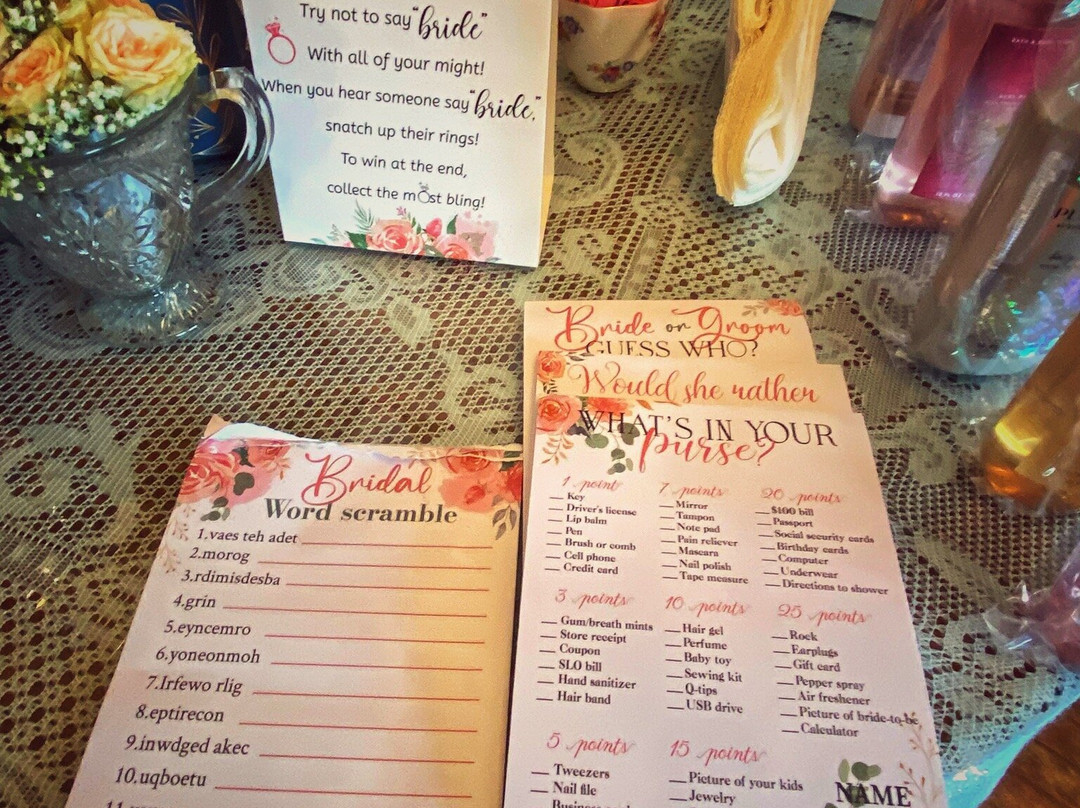 Try not to say "bride"
With all of your might!
When you hear someone say "bride,"
snatch up their rings!
To win at the end,
collect the most bling!
Bride or Groom
GUESS WHO?
Would she rather
WHAT'S IN YOUR
purse?
1 point
__ Key
__ Driver's license
__ Lip balm
__ Pen
__ Brush or comb
__ Cell phone
__ Credit card
7 points
__ Mirror
__ Tampon
__ Note pad
__ Pain reliever
__ Mascara
__ Nail polish
__ Tape measure
20 points
__ $100 bill
__ Passport
__ Social security cards
__ Birthday cards
__ Computer
__ Underwear
__ Directions to shower
3 points
__ Gum/breath mints
__ Store receipt
__ Coupon
__ SLO bill
__ Hand sanitizer
__ Hair band
10 points
__ Hair gel
__ Perfume
__ Baby toy
__ Sewing kit
__ Q-tips
__ USB drive
25 points
__ Rock
__ Earplugs
__ Gift card
__ Pepper spray
__ Air freshener
__ Picture of bride-to-be
__ Calculator
5 points
__ Tweezers
__ Nail file
15 points
__ Picture of your kids
__ Jewelry
NAME
Bridal
Word scramble
1.vaes teh adet
2.morog
3.rdimisdesba
4.grin
5.eyncemro
6.yoneonmoh
7.lrfewo rlig
8.eptirecon
9.inwdged akec
10.uqboetu